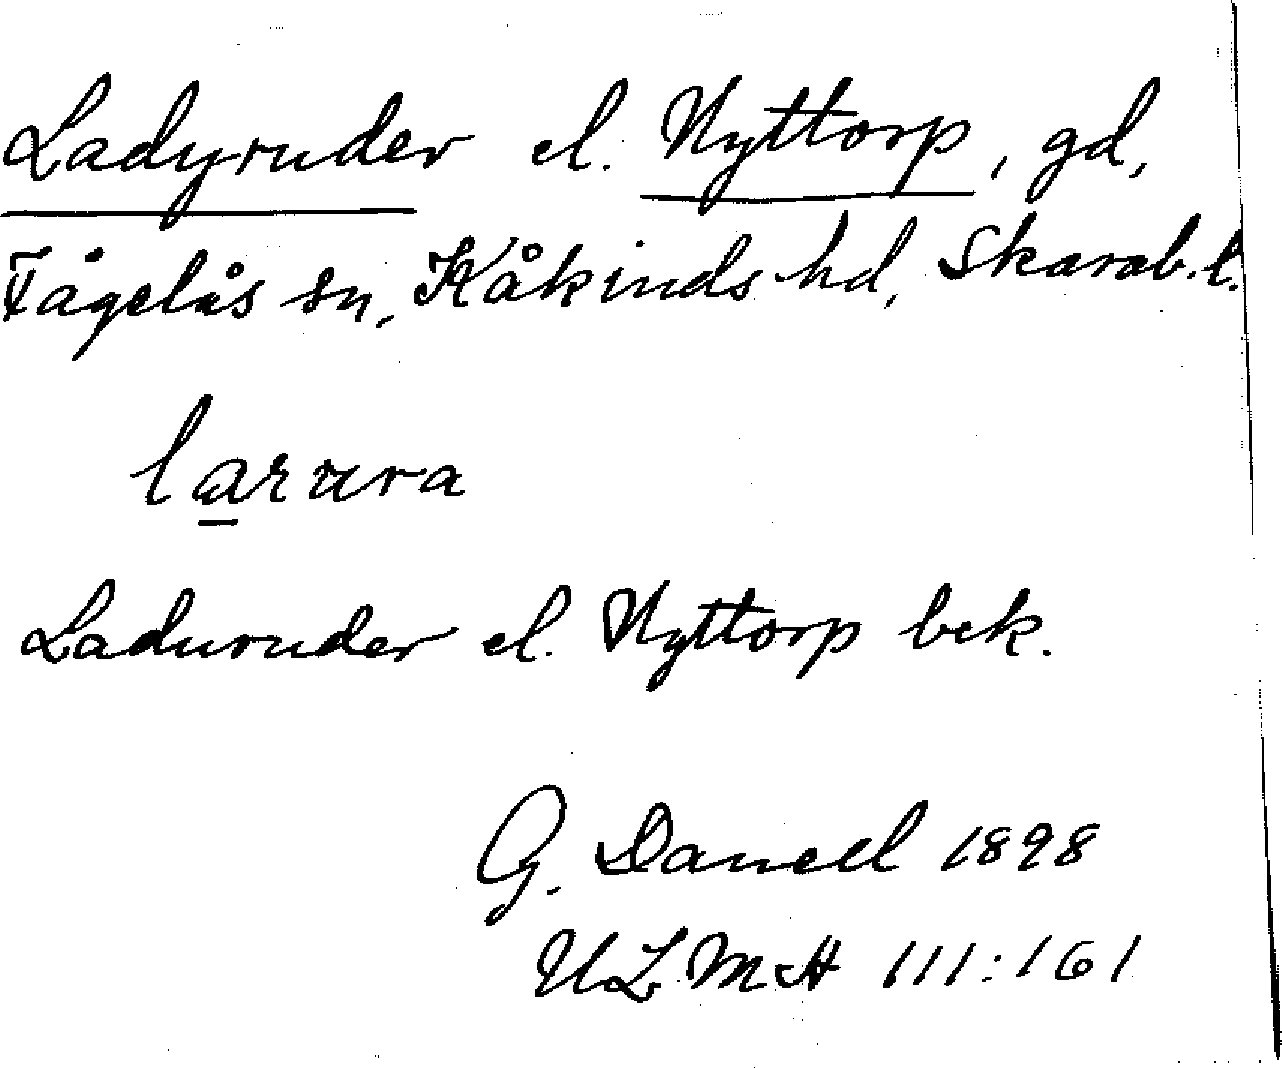 Ladyruder el. Nyttorp, gd,
Fågelås sn, Kåkinds hd, Skarab.l.
larura
Laduruder el. Nyttorp bek.
G. Danell 1898
ULMA 111:161